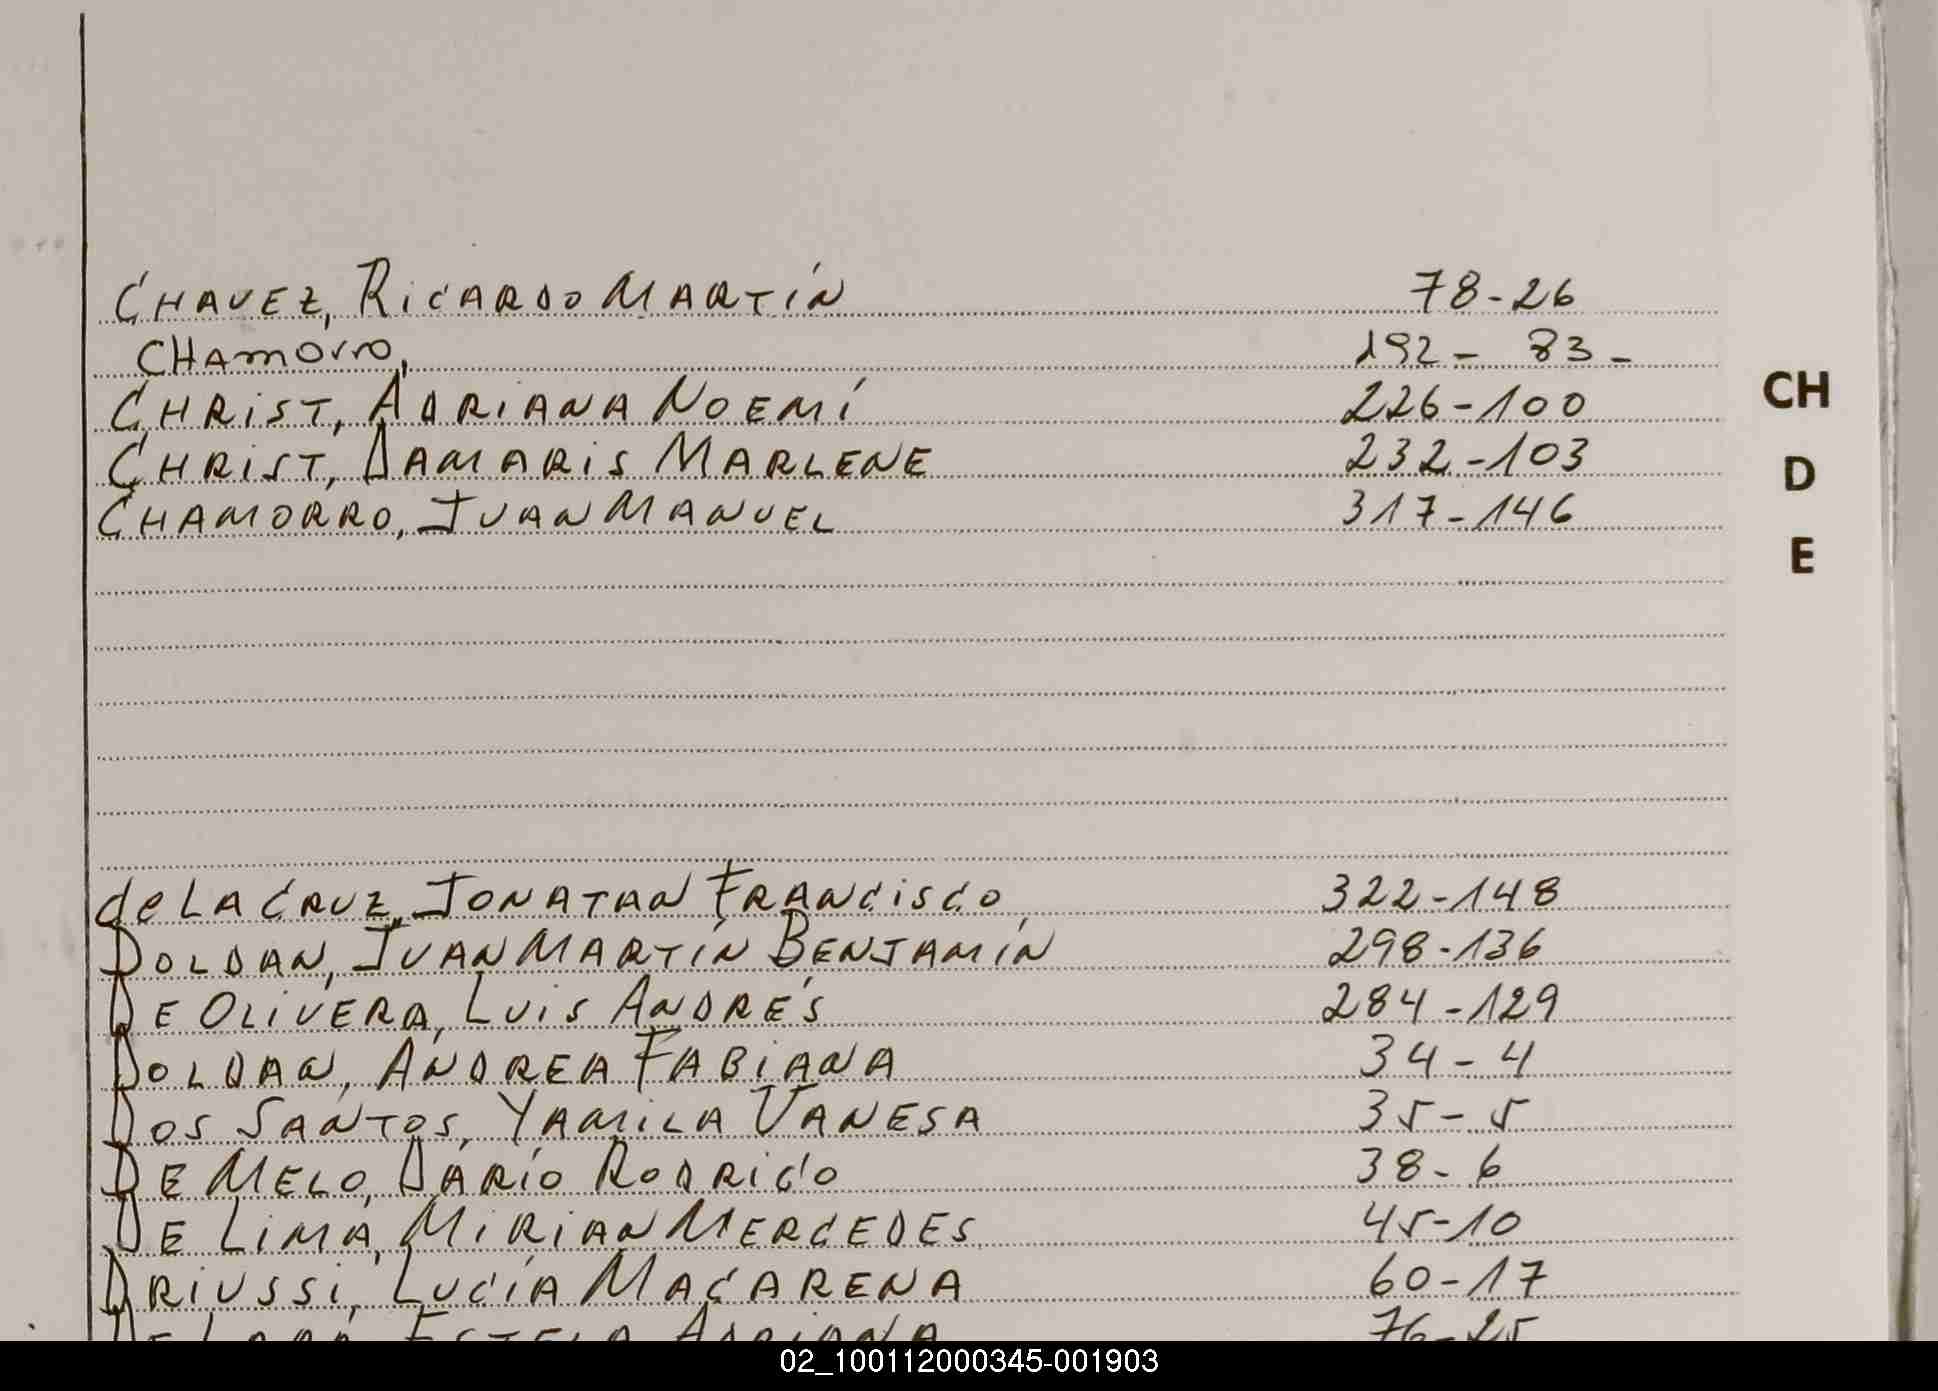 CHAVEZ, RICARDO MARTÍN 78-26
CHAmOrrO, 192- 83-
CHRIST, ADRIANA NOEMÍ 226-100
CHRIST, DAMARIS MARLENE 232-103
CHAMORRO, JUAN MANUEL 317-146
CH
D
E
de LA CRUZ, JONATAN FRANCISCO 322-148
DOLDAN, JUAN MARTÍN BENJAMÍN 298-136
DE OLIVERA, LUIS ANDRÉS 284-129
DOLDAN, ANDREA FABIANA 34-4
DOS SANTOS, YAMILA VANESA 35-5
DE MELO, DARÍO RODRIGO 38-6
DE LIMA, MIRIAN MERCEDES 45-10
DRIUSSI, LUCÍA MACARENA 60-17
DE LARA, ESTELA ADRIANA 76-25
02_100112000345-001903